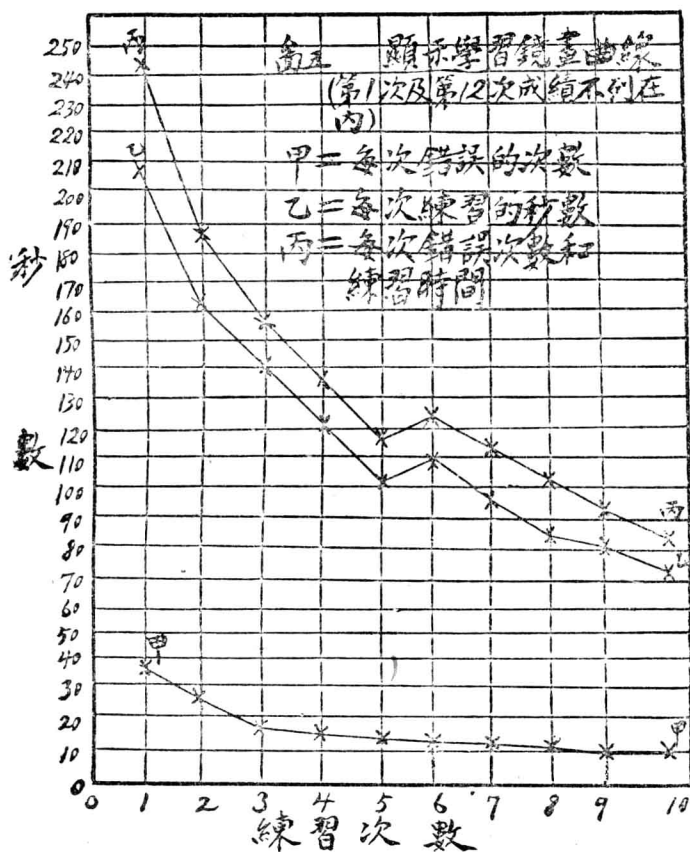 圖五 顯示學習鏡畫曲線
(第1次及第12次成績不列在
內)
甲=每次錯誤的次數
乙=每次練習的秒數
丙=每次錯誤次數和
練習時間
秒數
250
240
230
220
210
200
190
180
170
160
150
140
130
120
110
100
90
80
70
60
50
40
30
20
10
0
丙
乙
甲
丙
乙
甲
0 1 2 3 4 5 6 7 8 9 10
練習次數